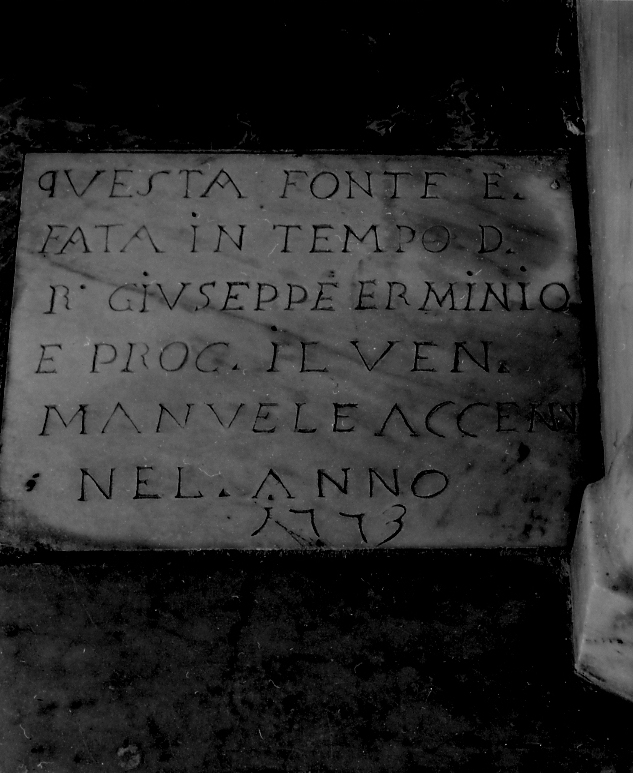 QVESTA FONTE E.
FATA IN TEMPO D.
R. GIVSEPPE ERMINIO
E PROC. IL VEN.
MANVELE ACCENI
NEL. ANNO
1773